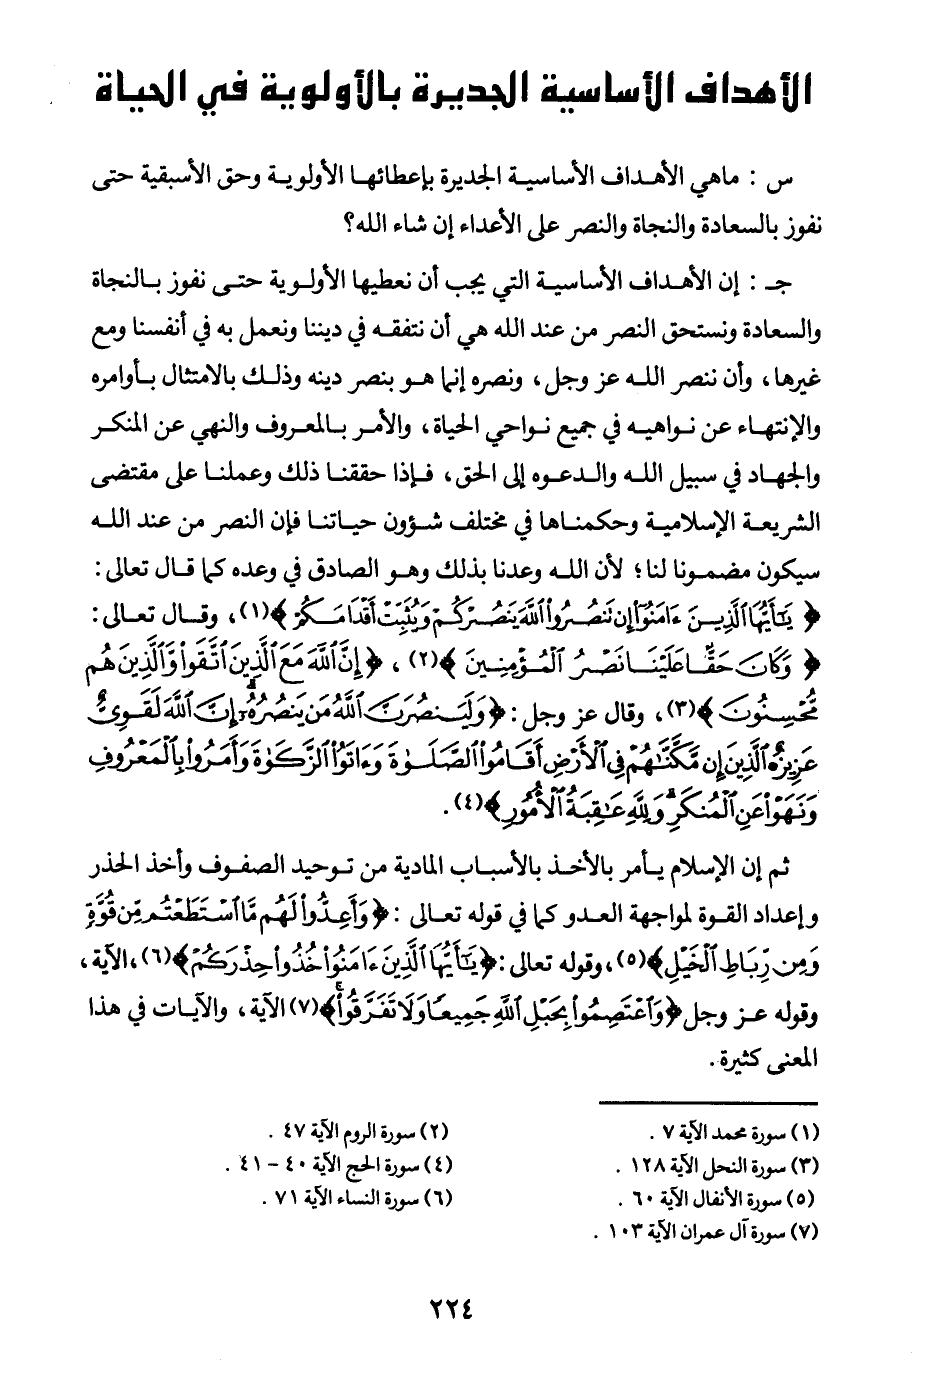 الأهداف الأساسية الجديرة بالأولوية في الحياة
س : ماهي الأهداف الأساسية الجديرة بإعطائها الأولوية وحق الأسبقية حتى
نفوز بالسعادة والنجاة والنصر على الأعداء إن شاء الله؟
جـ : إن الأهداف الأساسية التي يجب أن نعطيها الأولوية حتى نفوز بالنجاة
والسعادة ونستحق النصر من عند الله هي أن نتفقه في ديننا ونعمل به في أنفسنا ومع
غيرها، وأن ننصر الله عز وجل، ونصره إنما هو بنصر دينه وذلك بالامتثال بأوامره
والإنتهاء عن نواهيه في جميع نواحي الحياة، والأمر بالمعروف والنهي عن المنكر
والجهاد في سبيل الله والدعوه إلى الحق، فإذا حققنا ذلك وعملنا على مقتضى
الشريعة الإسلامية وحكمناها في مختلف شؤون حياتنا فإن النصر من عند الله
سيكون مضمونا لنا؛ لأن الله وعدنا بذلك وهو الصادق في وعده كما قال تعالى:
﴿ يَٰٓأَيُّهَا ٱلَّذِينَ ءَامَنُوٓا۟ إِن تَنصُرُوا۟ ٱللَّهَ يَنصُرْكُمْ وَيُثَبِّتْ أَقْدَامَكُمْ ﴾(١)، وقال تعالى:
﴿ وَكَانَ حَقًّا عَلَيْنَا نَصْرُ ٱلْمُؤْمِنِينَ ﴾(٢) ، ﴿ إِنَّ ٱللَّهَ مَعَ ٱلَّذِينَ ٱتَّقَوا۟ وَّٱلَّذِينَ هُم
مُّحْسِنُونَ ﴾(٣)، وقال عز وجل: ﴿ وَلَيَنصُرَنَّ ٱللَّهُ مَن يَنصُرُهُۥٓ إِنَّ ٱللَّهَ لَقَوِىٌّ
عَزِيزٌ ۝ ٱلَّذِينَ إِن مَّكَّنَّٰهُمْ فِى ٱلْأَرْضِ أَقَامُوا۟ ٱلصَّلَوٰةَ وَءَاتَوُا۟ ٱلزَّكَوٰةَ وَأَمَرُوا۟ بِٱلْمَعْرُوفِ
وَنَهَوْا۟ عَنِ ٱلْمُنكَرِ ۗ وَلِلَّهِ عَٰقِبَةُ ٱلْأُمُورِ ﴾(٤).
ثم إن الإسلام يأمر بالأخذ بالأسباب المادية من توحيد الصفوف وأخذ الحذر
وإعداد القوة لمواجهة العدو كما في قوله تعالى : ﴿ وَأَعِدُّوا۟ لَهُم مَّا ٱسْتَطَعْتُم مِّن قُوَّةٍ
وَمِن رِّبَاطِ ٱلْخَيْلِ ﴾(٥)، وقوله تعالى: ﴿ يَٰٓأَيُّهَا ٱلَّذِينَ ءَامَنُوا۟ خُذُوا۟ حِذْرَكُمْ ﴾(٦)، الآية،
وقوله عز وجل ﴿ وَٱعْتَصِمُوا۟ بِحَبْلِ ٱللَّهِ جَمِيعًا وَلَا تَفَرَّقُوا۟ ۚ ﴾(٧) الآية، والآيات في هذا
المعنى كثيرة.
(١) سورة محمد الآية ٧ .
(٢) سورة الروم الآية ٤٧ .
(٣) سورة النحل الآية ١٢٨ .
(٤) سورة الحج الآية ٤٠ - ٤١ .
(٥) سورة الأنفال الآية ٦٠ .
(٦) سورة النساء الآية ٧١ .
(٧) سورة آل عمران الآية ١٠٣ .
٢٢٤